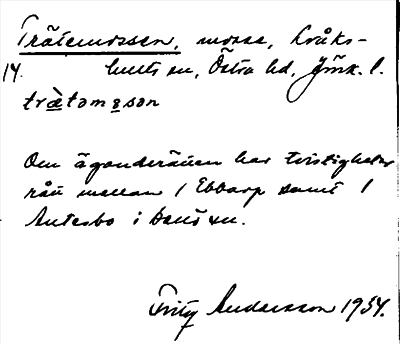 Trätemossen, mosse, Kråks-
14. hults sn, Östra hd, Jönk. l.
træ̀tomɔsən
Om äganderätten har tvistigheter
rått mellan 1 Ebbarp samt 1
Antesbo i sn.
Fritz Andersson 1934.